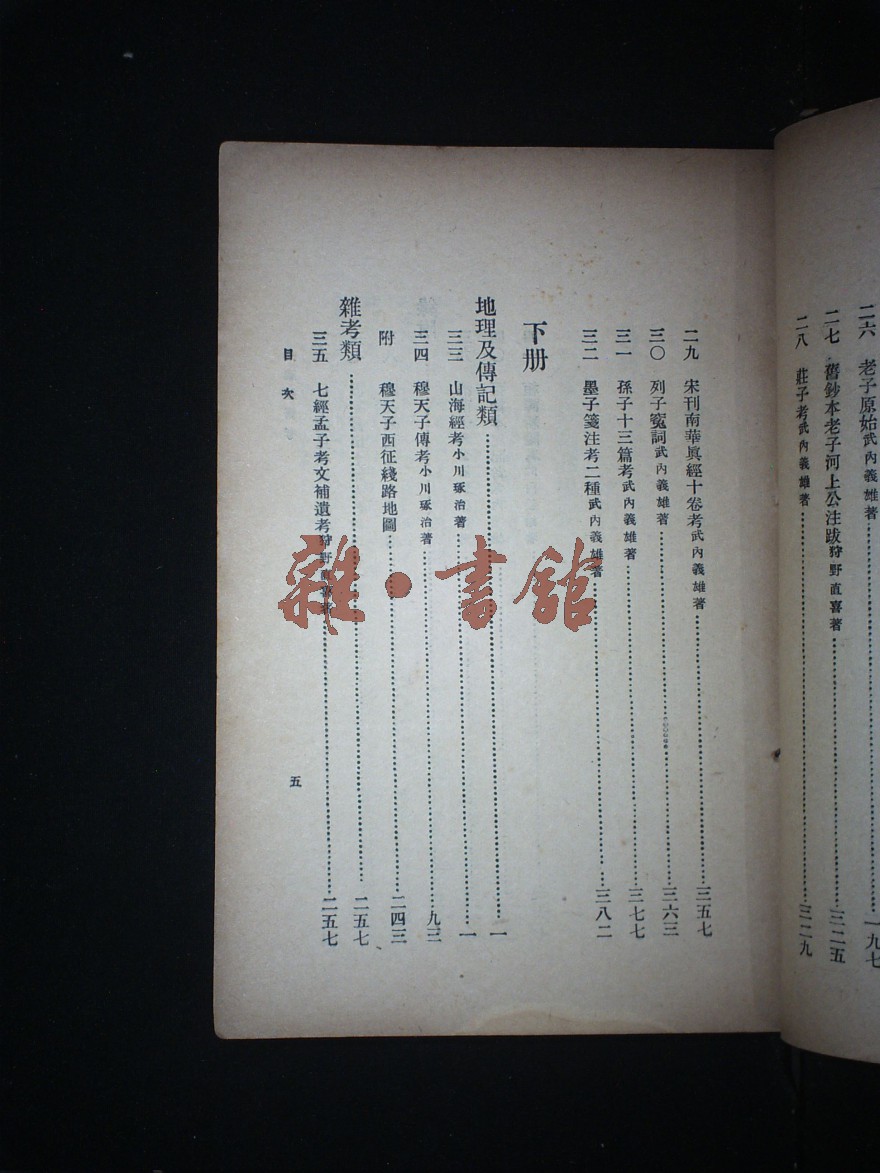 二六　老子原始武內義雄著……一九七
二七　舊鈔本老子河上公注跋狩野直喜著……三二五
二八　莊子考武內義雄著……三二九
二九　宋刊南華眞經十卷考武內義雄著……三五七
三〇　列子寃詞武內義雄著……三六三
三一　孫子十三篇考武內義雄著……三七七
三二　墨子箋注考二種武內義雄著……三八二
下册
地理及傳記類……一
三三　山海經考小川琢治著……一
三四　穆天子傳考小川琢治著……九三
附　穆天子西征綫路地圖……二四三
雜考類……二五七
三五　七經孟子考文補遺考狩野直喜著……二五七
目次
五
雜·書館